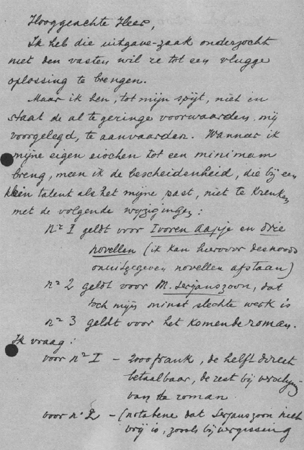 Hooggeachte Heer,
Ik heb die uitgave-zaak onderzocht
met den vasten wil ze tot een vlugge
oplossing te brengen.
Maar ik ben, tot mijn spijt, niet in
staat de al te geringe voorwaarden, mij
voorgelegd, te aanvaarden. Wanneer ik
mijne eigen eischen tot een minimum
breng, meen ik de bescheidenheid, die bij een
klein talent als het mijne past, niet te krenken
met de volgende wijzigingen:
nr I geldt voor Ivoren Aapje en drie
novellen (ik kan hiervoor desnoods
onuitgegeven novellen afstaan)
nr 2 geldt voor M. Serjanszoon, dat
toch mijn minst slechte werk is
nr 3 geldt voor het komende roman.
Ik vraag:
voor nr I - 2000 frank, de helft direct
betaalbaar, de rest bij
van de roman
voor nr 2 - (nota bene dat Serjanszoon niet
vrij is, zooals bij vergissing